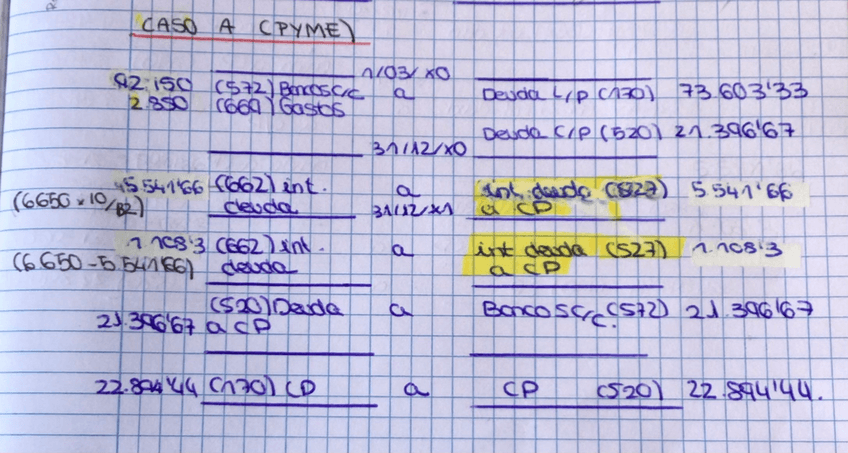 CASO A (PYME)
1/03/x0
92.150 (572) Bancos c/c a Deuda L/P (170) 73.603'33
2.850 (669) Gastos
Deuda C/P (520) 21.396'67
31/12/x0
5.541'66 (662) int. a int. deuda (527) 5.541'66
(6650 x 10/12) deuda a CP
31/12/x1
1.108'3 (662) int. a int deuda (527) 1.108'3
(6650-5.541'66) deuda a CP
(520) Deuda a Bancos c/c. (572) 21.396'67
21.396'67 a CP
22.894'44 (170) CD a CP (520) 22.894'44.